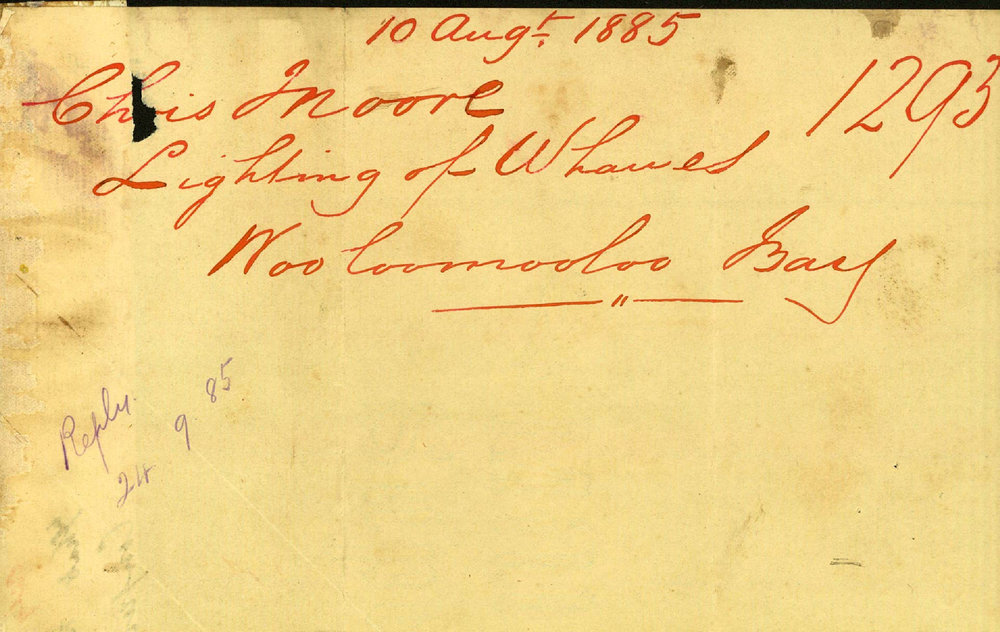 10 Augt. 1885
Chris Moore 1293
Lighting of Whaves
Wooloomooloo Bay
"
Reply
24 9 85